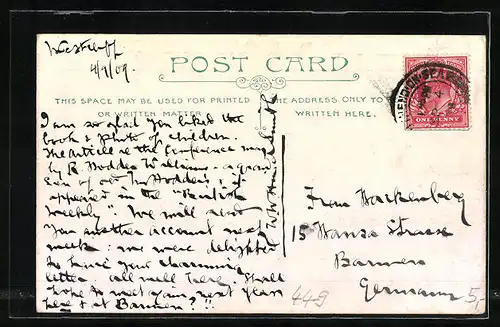 Westcliff
4/1/09.
POST CARD
THIS SPACE MAY BE USED FOR PRINTED
OR WRITTEN MATTER.
THE ADDRESS ONLY TO
WRITTEN HERE.
I am so glad you liked the
book & photo of children.
The article on the conference was
by R Hodder Williams - a grand
son of our Mr Hodder, it
appeared in the "British
Weekly". We will send
you another account next
week: we were delighted
to have your charming
letter all well here. Shall
hope to meet you next year
here or at Barmen?!!
Frau Hackenberg
15 Hansa Strasse
Barmen
Germany
ONE PENNY
449
5,